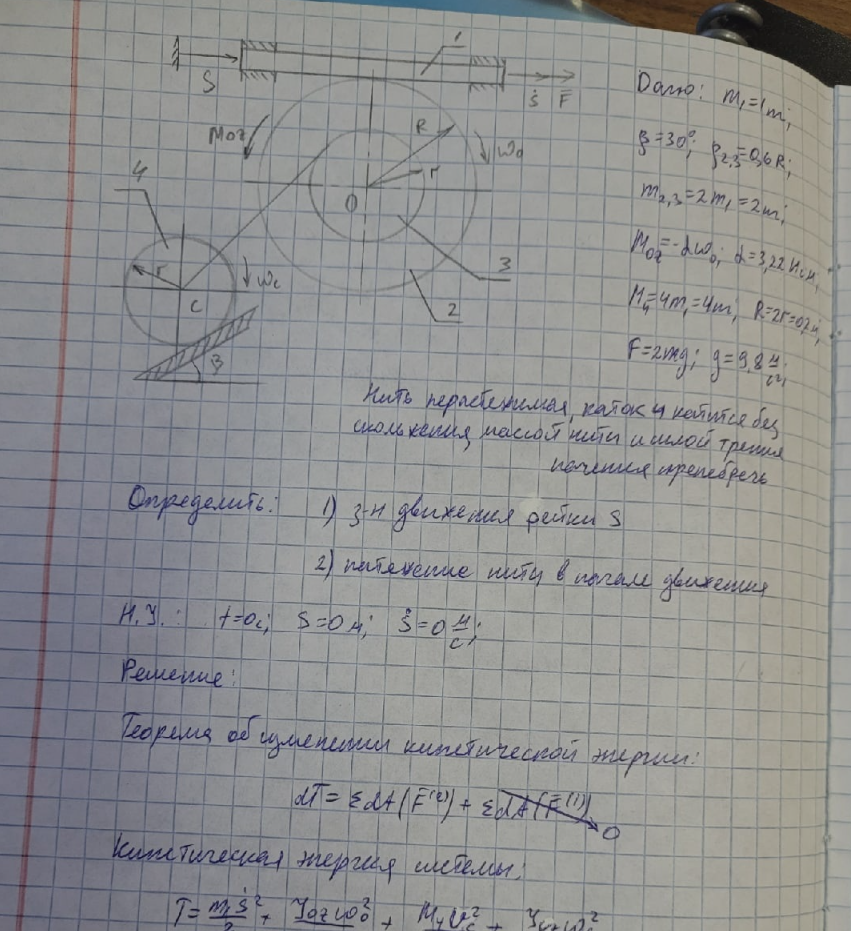 1
S
Ṡ F̄
M₀z
R
ω₀
r
O
4
r
C
ω_c
3
2
β
Дано: m₁=1m;
β=30°; ρ₂,₃=0,6R;
m₂,₃=2m₁=2m;
M₀z=-αω₀; α=3,22 Нсм;
M₄=4m₁=4m; R=2r=0,2м;
F=2mg; g=9,8 м/с²;
Нить нерастяжимая, каток 4 катится без
скольжения, массой нити и силой трения
качения пренебречь
Определить: 1) з-н движения рейки S
2) натяжение нити в начале движения
Н.У.: t=0с; S=0м; Ṡ=0 м/с;
Решение:
Теорема об изменении кинетической энергии:
dT = ΣdA(F̄⁽ᵉ⁾) + ΣdA(F̄⁽ⁱ⁾) 0
Кинетическая энергия системы:
T = m₁Ṡ²/2 + J₀zω₀² + M₄V_c² +